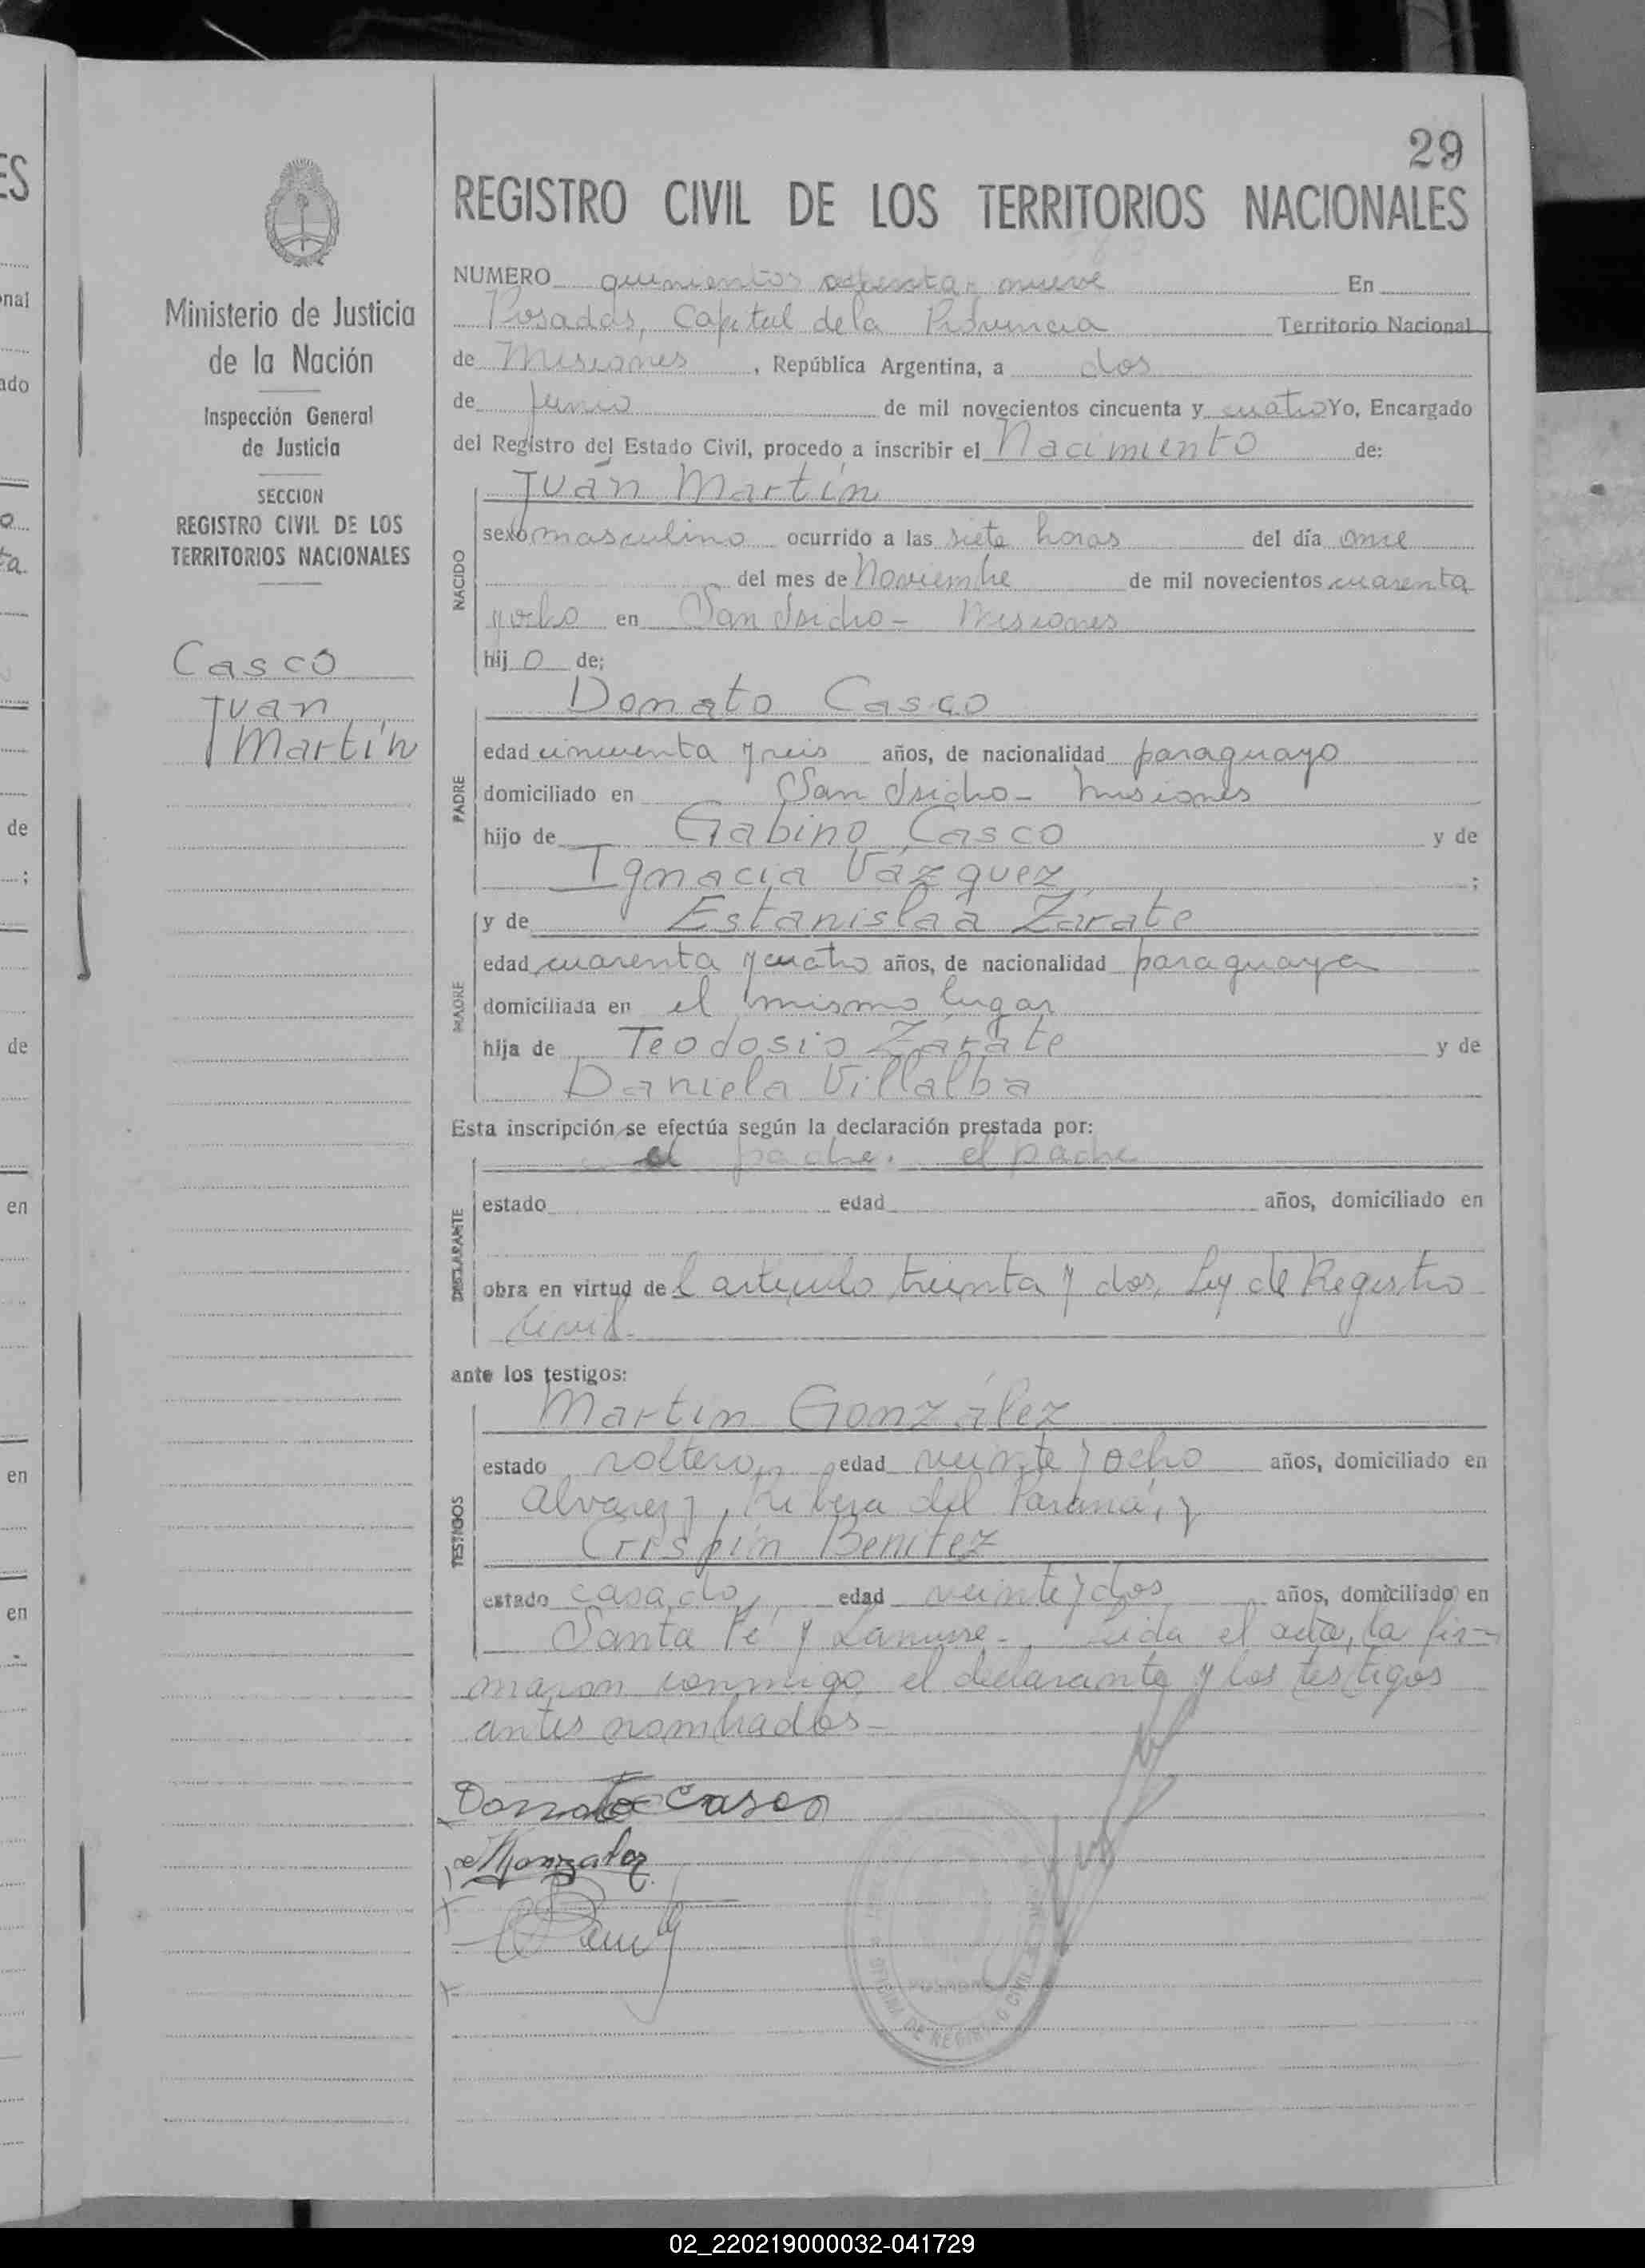 29
REGISTRO CIVIL DE LOS TERRITORIOS NACIONALES
Ministerio de Justicia
de la Nación
Inspección General
de Justicia
SECCION
REGISTRO CIVIL DE LOS
TERRITORIOS NACIONALES
Casco
Juan
Martín
NUMERO quinientos nueve En
Posadas, Capital de la Provincia Territorio Nacional
de Misiones, República Argentina, a dos
de Junio de mil novecientos cincuenta y cuatro Yo, Encargado
del Registro del Estado Civil, procedo a inscribir el Nacimiento de:
Juan Martín
NACIDO
sexo masculino ocurrido a las siete horas del día once
del mes de Noviembre de mil novecientos cuarenta
y ocho en San Isidro - Misiones
hijo de;
Donato Casco
PADRE
edad cincuenta y seis años, de nacionalidad paraguayo
domiciliado en San Isidro - Misiones
hijo de Gabino Casco y de
Ignacia Vázquez ;
y de Estanislaa Zarate
MADRE
edad cuarenta y cuatro años, de nacionalidad paraguaya
domiciliada en el mismo lugar
hija de Teodosio Zárate y de
Daniela Villalba
Esta inscripción se efectúa según la declaración prestada por:
el padre. el padre
DECLARANTE
estado edad años, domiciliado en
obra en virtud del artículo treinta y dos, Ley de Registro
Civil -
ante los testigos:
Martin González
TESTIGOS
estado soltero, edad veinte y ocho años, domiciliado en
Alvarez y Ribera del Paraná, y
Crispín Benítez
estado casado, edad veinte y dos años, domiciliado en
Santa Fé y Lanusse -. Leída el acta, la fir-
maron conmigo el declarante y los testigos
antes nombrados -
Donato Casco
OFICINA DE REGISTRO CIVIL
POSADAS
02_220219000032-041729